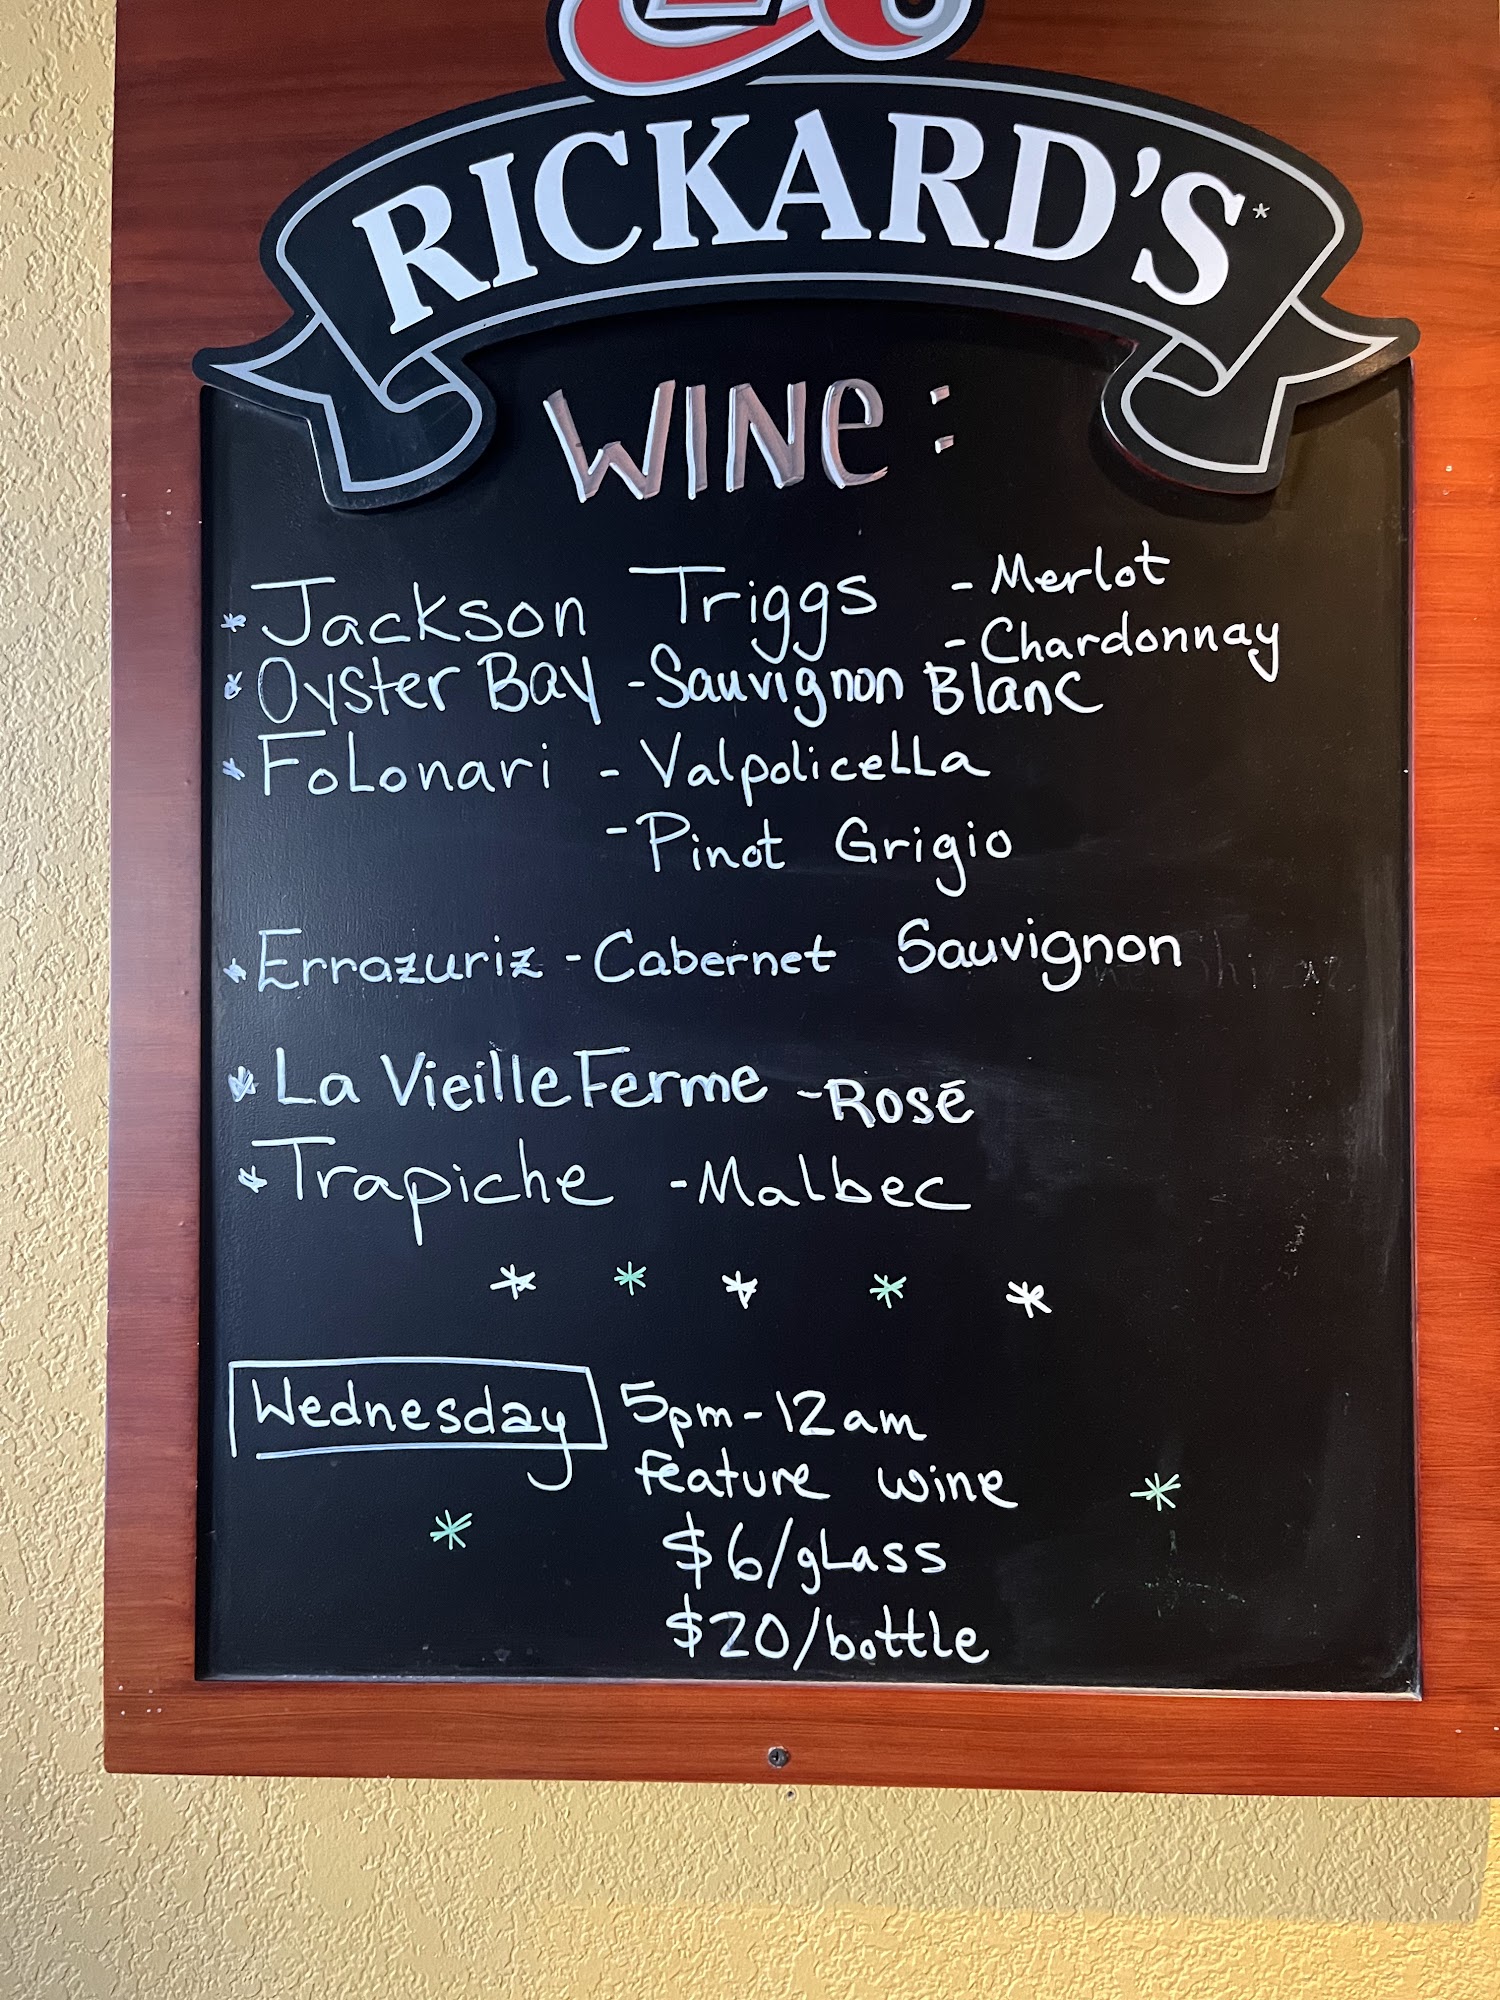 RICKARD'S*
WINE:
* Jackson Triggs - Merlot
- Chardonnay
* Oyster Bay - Sauvignon Blanc
* Folonari - Valpolicella
- Pinot Grigio
* Errazuriz - Cabernet Sauvignon
* La Vieille Ferme - Rosé
* Trapiche - Malbec
* * * * *
Wednesday 5pm-12am
feature wine
$6/glass
$20/bottle